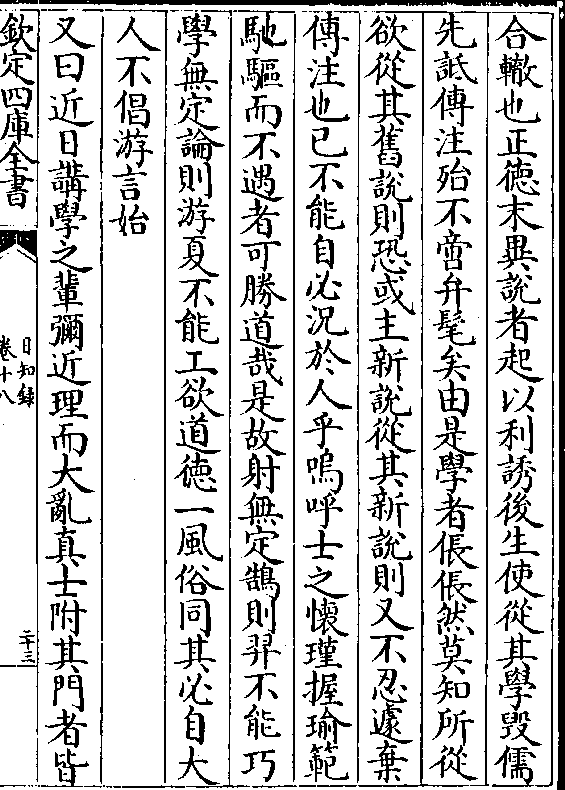 合轍也正徳末異說者起以利誘後生使從其學毁儒
先詆傳注殆不啻弁髦矣由是學者倀倀然莫知所從
欲從其舊說則恐或主新說從其新說則又不忍遽棄
傳注也已不能自必況於人乎嗚呼士之懷瑾握瑜範
馳驅而不遇者可勝道哉是故射無定鵠則羿不能巧
學無定論則游夏不能工欲道徳一風俗同其必自大
人不倡游言始
又曰近日講學之輩彌近理而大亂真士附其門者皆
欽定四庫全書
日知錄
卷十八
二十三